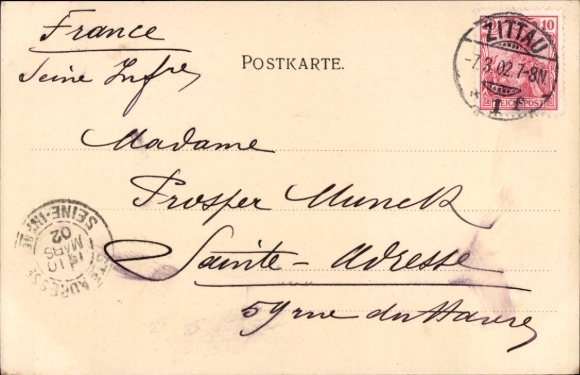 France
Seine Infre
POSTKARTE.
10
ZITTAU
-7.3.02.7-8N.
* 1 f.
REICHSPOST
Madame
Prosper Munck
Sainte-Adresse
59 rue du Havre
STE ADRESSE
10
MARS
02
SEINE-INFRE